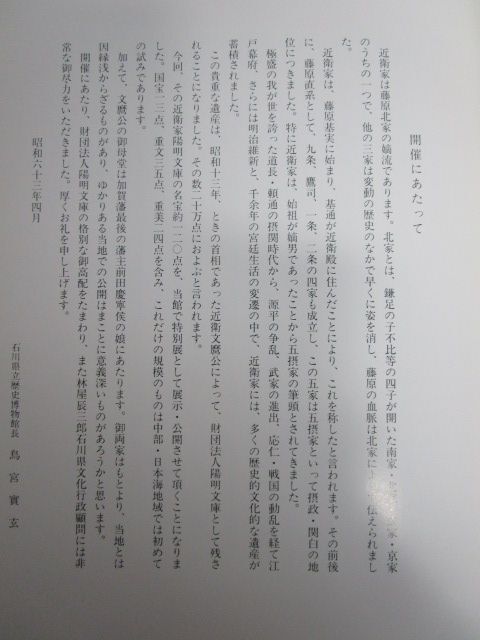 開催にあたって
近衛家は藤原北家の嫡流であります。北家とは、鎌足の子不比等の四子が開いた南家・ 家・京家
のうちの一つで、他の三家は変動の歴史のなかで早くに姿を消し、藤原の血脈は北家に 伝えられまし
た。
近衛家は、藤原基実に始まり、基通が近衛殿に住んだことにより、これを称したと言われます。その前後
に、藤原直系として、九条、鷹司、一条、二条の四家も成立し、この五家は五摂家といって摂政・関白の地
位につきました。特に近衛家は、始祖が嫡男であったことから五摂家の筆頭とされてきました。
極盛の我が世を誇った道長・頼通の摂関時代から、源平の争乱、武家の進出、応仁・戦国の動乱を経て江
戸幕府、さらには明治維新と、千余年の宮廷生活の変遷の中で、近衛家には、多くの歴史的文化的な遺産が
蓄積されました。
この貴重な遺産は、昭和十三年、ときの首相であった近衛文麿公によって、財団法人陽明文庫として残さ
れることになりました。その数二十万点におよぶと言われます。
今回、その近衛家陽明文庫の名宝約一二〇点を、当館で特別展として展示・公開させて頂くことになりま
した。国宝一三点、重文三五点、重美二四点を含み、これだけの規模のものは中部・日本海地域では初めて
の試みであります。
加えて、文麿公の御母堂は加賀藩最後の藩主前田慶寧侯の娘にあたります。御両家はもとより、当地とは
因縁浅からざるものがあり、ゆかりある当地での公開はまことに意義深いものがあろうかと思います。
開催にあたり、財団法人陽明文庫の格別な御高配をたまわり、また林屋辰三郎石川県文化行政顧問には非
常な御尽力をいただきました。厚くお礼を申し上げます。
昭和六十三年四月
石川県立歴史博物館長 鳥宮實玄